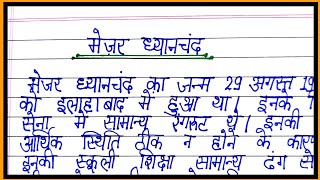 मेज़र ध्यानचंद
मेजर ध्यानचंद का जन्म 29 अगस्त 19
को इलाहाबाद में हुआ था। इनके
सेना में सामान्य रंगरूट थे। इनकी
आर्थिक स्थिति ठीक न होने के कार
इनकी स्कूली शिक्षा सामान्य ढंग से